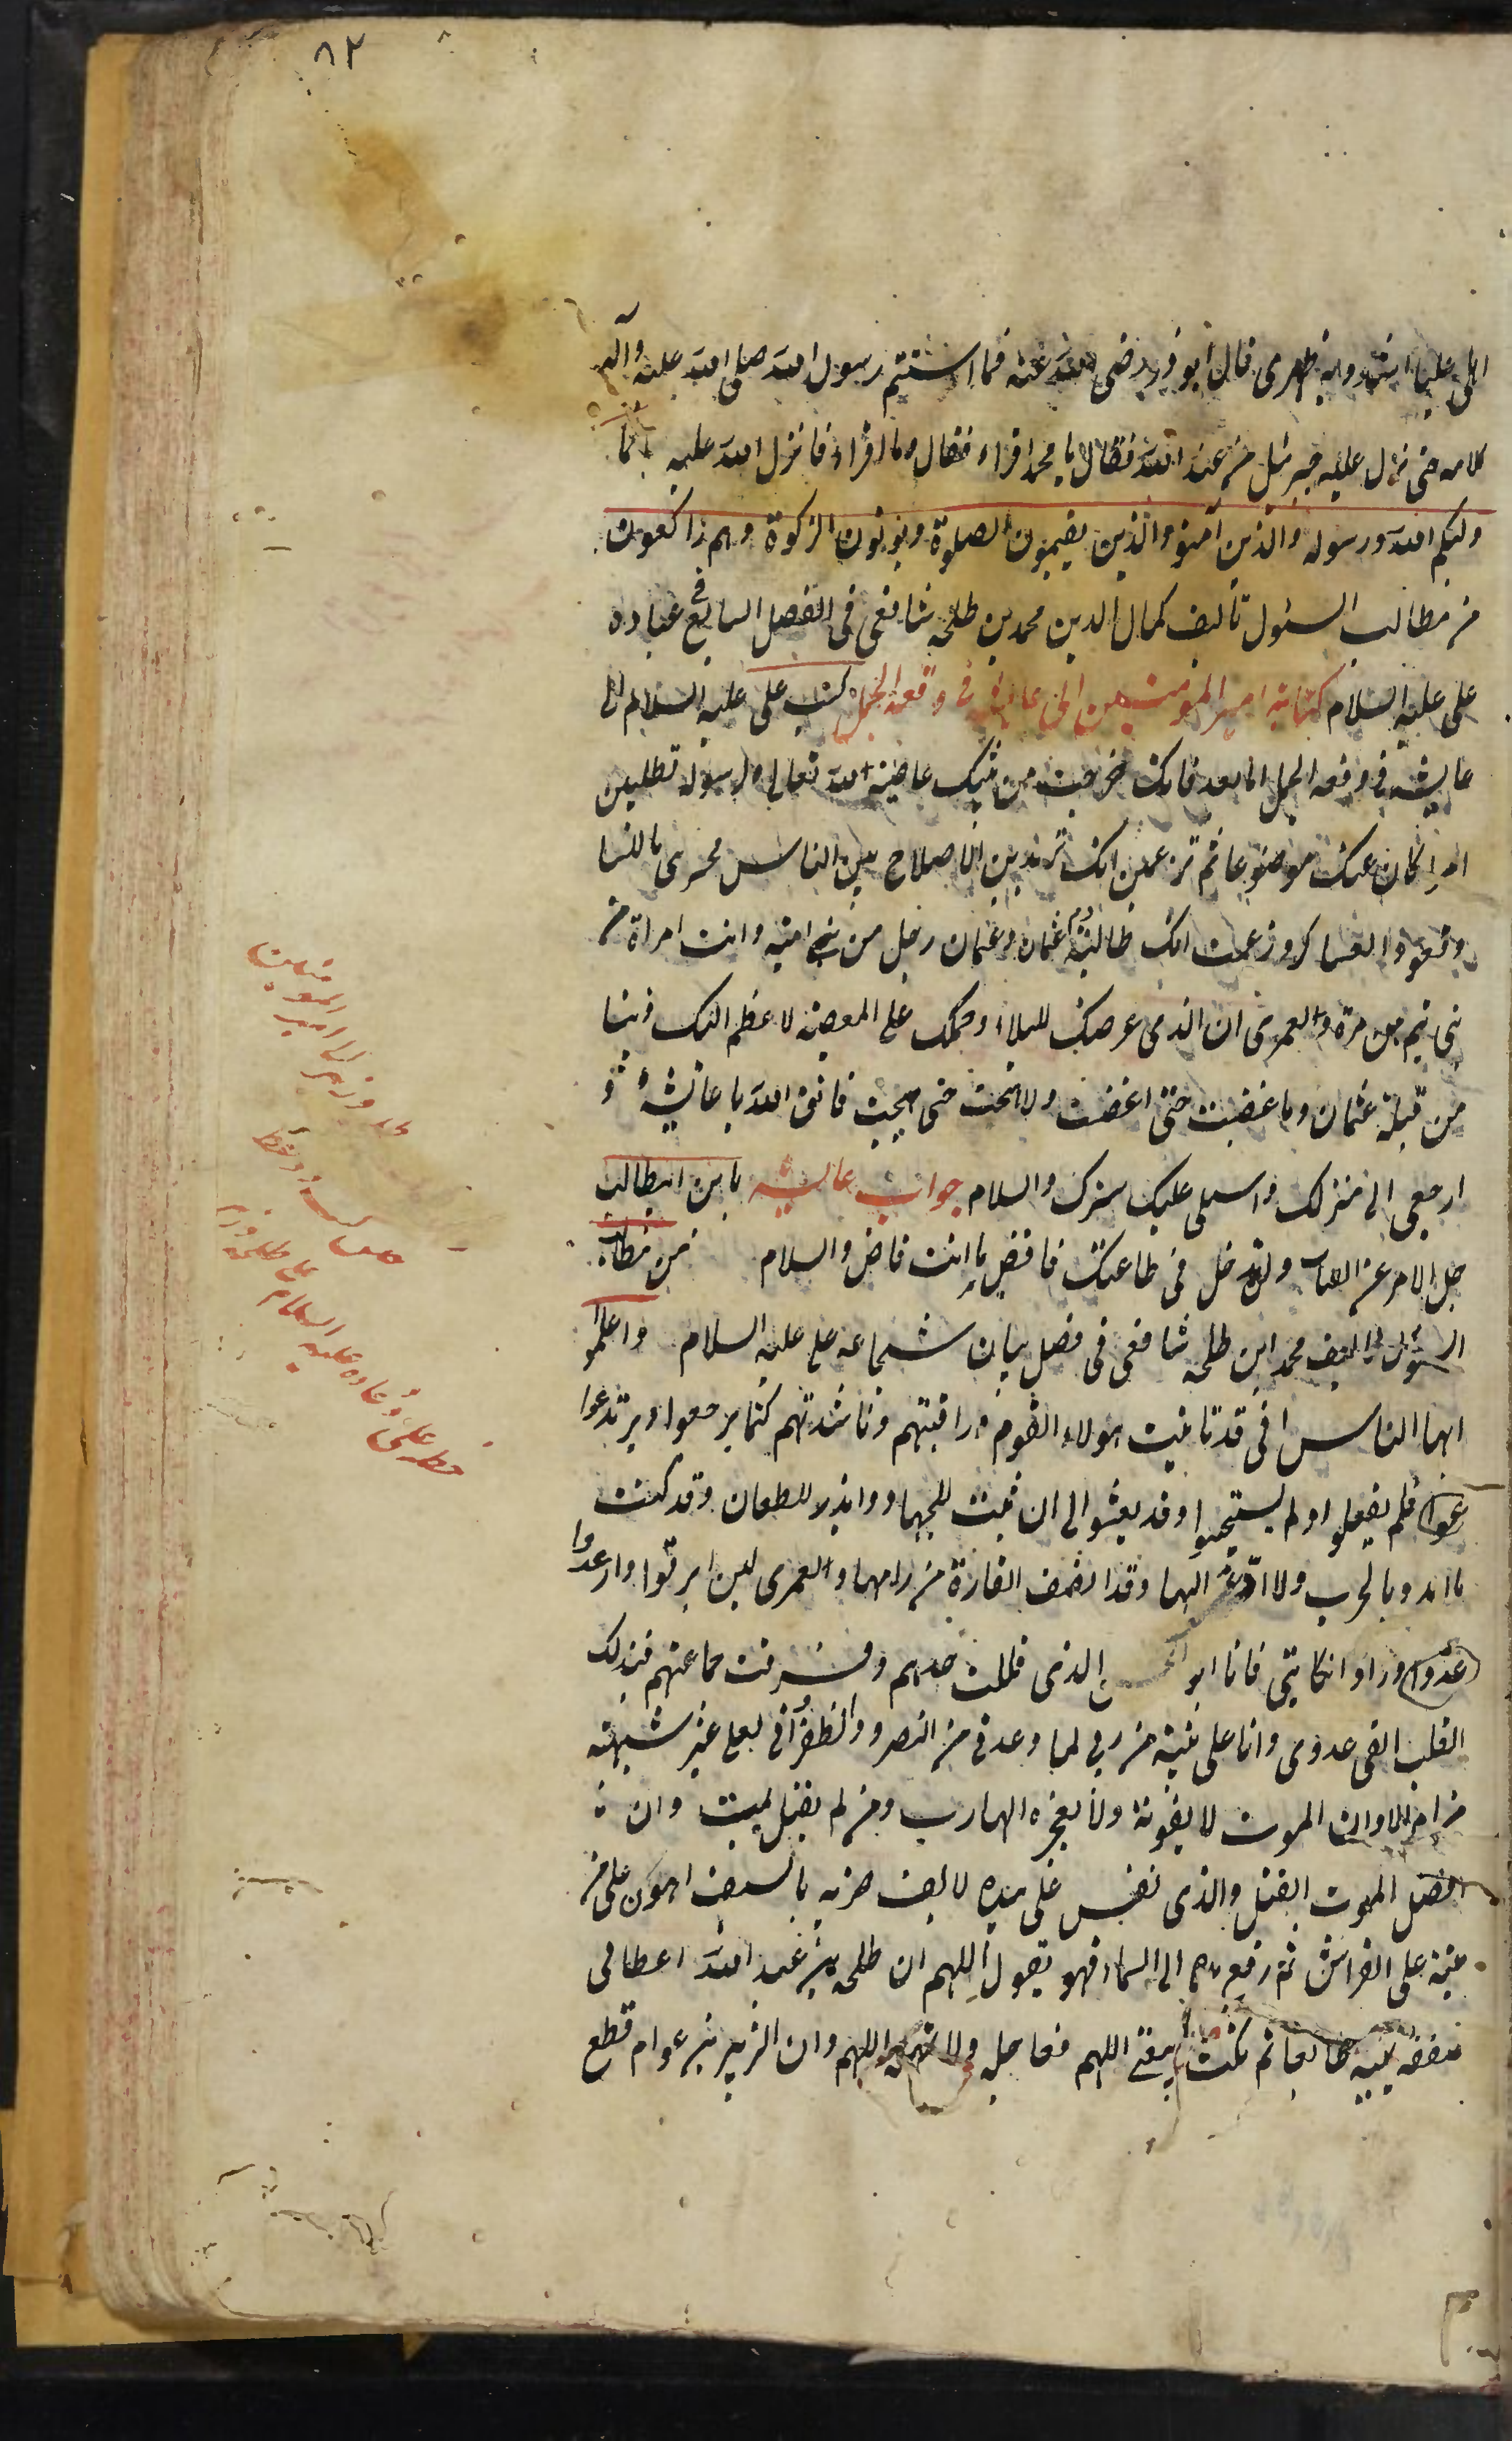 ۸۲
اهلی علیا اشدد به ظهری قال ابو ذر رضی الله عنه فما استتم رسول الله صلی الله علیه وآله
کلامه حتی نزل علیه جبرئیل من عند الله فقال یا محمد اقراء فقال وما اقراء فانزل الله علیه انما
ولیکم الله ورسوله والذین آمنوا والذین یقیمون الصلوة ویؤتون الزکوة وهم راکعون
من مطالب السئول تالیف کمال الدین محمد بن طلحه شافعی فی الفصل السابع فی عباده
علی علیه السلام کتابة امیر المؤمنین الی عایشه فی وقعة الجمل کتب علی علیه السلام الی
عایشه فی وقعه الجمل اما بعد فانک خرجت من بیتک عاصیة لله تعالی ولرسوله تطلبین
امرا کان عنک موضوعا ثم تزعمین انک تریدین الاصلاح بین الناس فخبرنی ما للنسا
وقود العساکر وزعمت انک طالبة بدم عثمان وعثمان رجل من بنی امیه وانت امراة من
بنی تیم بن مرة ولعمری ان الذی عرضک للبلاء وحملک علی المعصیه لاعظم الیک ذنبا
من قتلة عثمان وما غضبت حتی اغضبت ولا هجت حتی هیجت فاتق الله یا عائشه و
ارجعی الی منزلک واسبلی علیک سترک والسلام جواب عایشه یا بن ابیطالب
جل الامر عن العتاب ولن ندخل فی طاعتک فاقض ما انت قاض والسلام من مطالب
السئول تالیف محمد ابن طلحه شافعی فی فصل بیان شجاعه علی علیه السلام واعلموا
ایها الناس انی قد تانیت هولاء القوم وراقبتهم وناشدتهم کیما یرجعوا ویرتدعوا
فلم یفعلوا ولم یستجیبوا وقد بعثوا الی ان اثبت للجهاد وابذر للطعان وقد کنت
ما اهدد بالحرب ولا ادعی الیها وقد انصف القارة من راماها ولعمری لین ابرقوا وارعدوا
وراوا نکایتی فانا ابو الحسن الذی فللت حدهم وفرقت جماعتهم فبذلک
القلب القی عدوی وانا علی بینة من ربی لما وعدنی من النصر والظفر انی لعلی غیر شبهته
من امر الا وان الموت لا یفوته ولا یعجزه الهارب ومن لم یقتل یمیت وان
افضل الموت القتل والذی نفس علی بیده لالف ضربه بالسیف اهون علی من
میتة علی الفراش ثم رفع یده الی السماء فهو یقول اللهم ان طلحه بن عبد الله اعطانی
صفقه یمینه طایعا ثم نکث بیعتی اللهم فعاجله ولا تمهله اللهم وان الزبیر بن عوام قطع